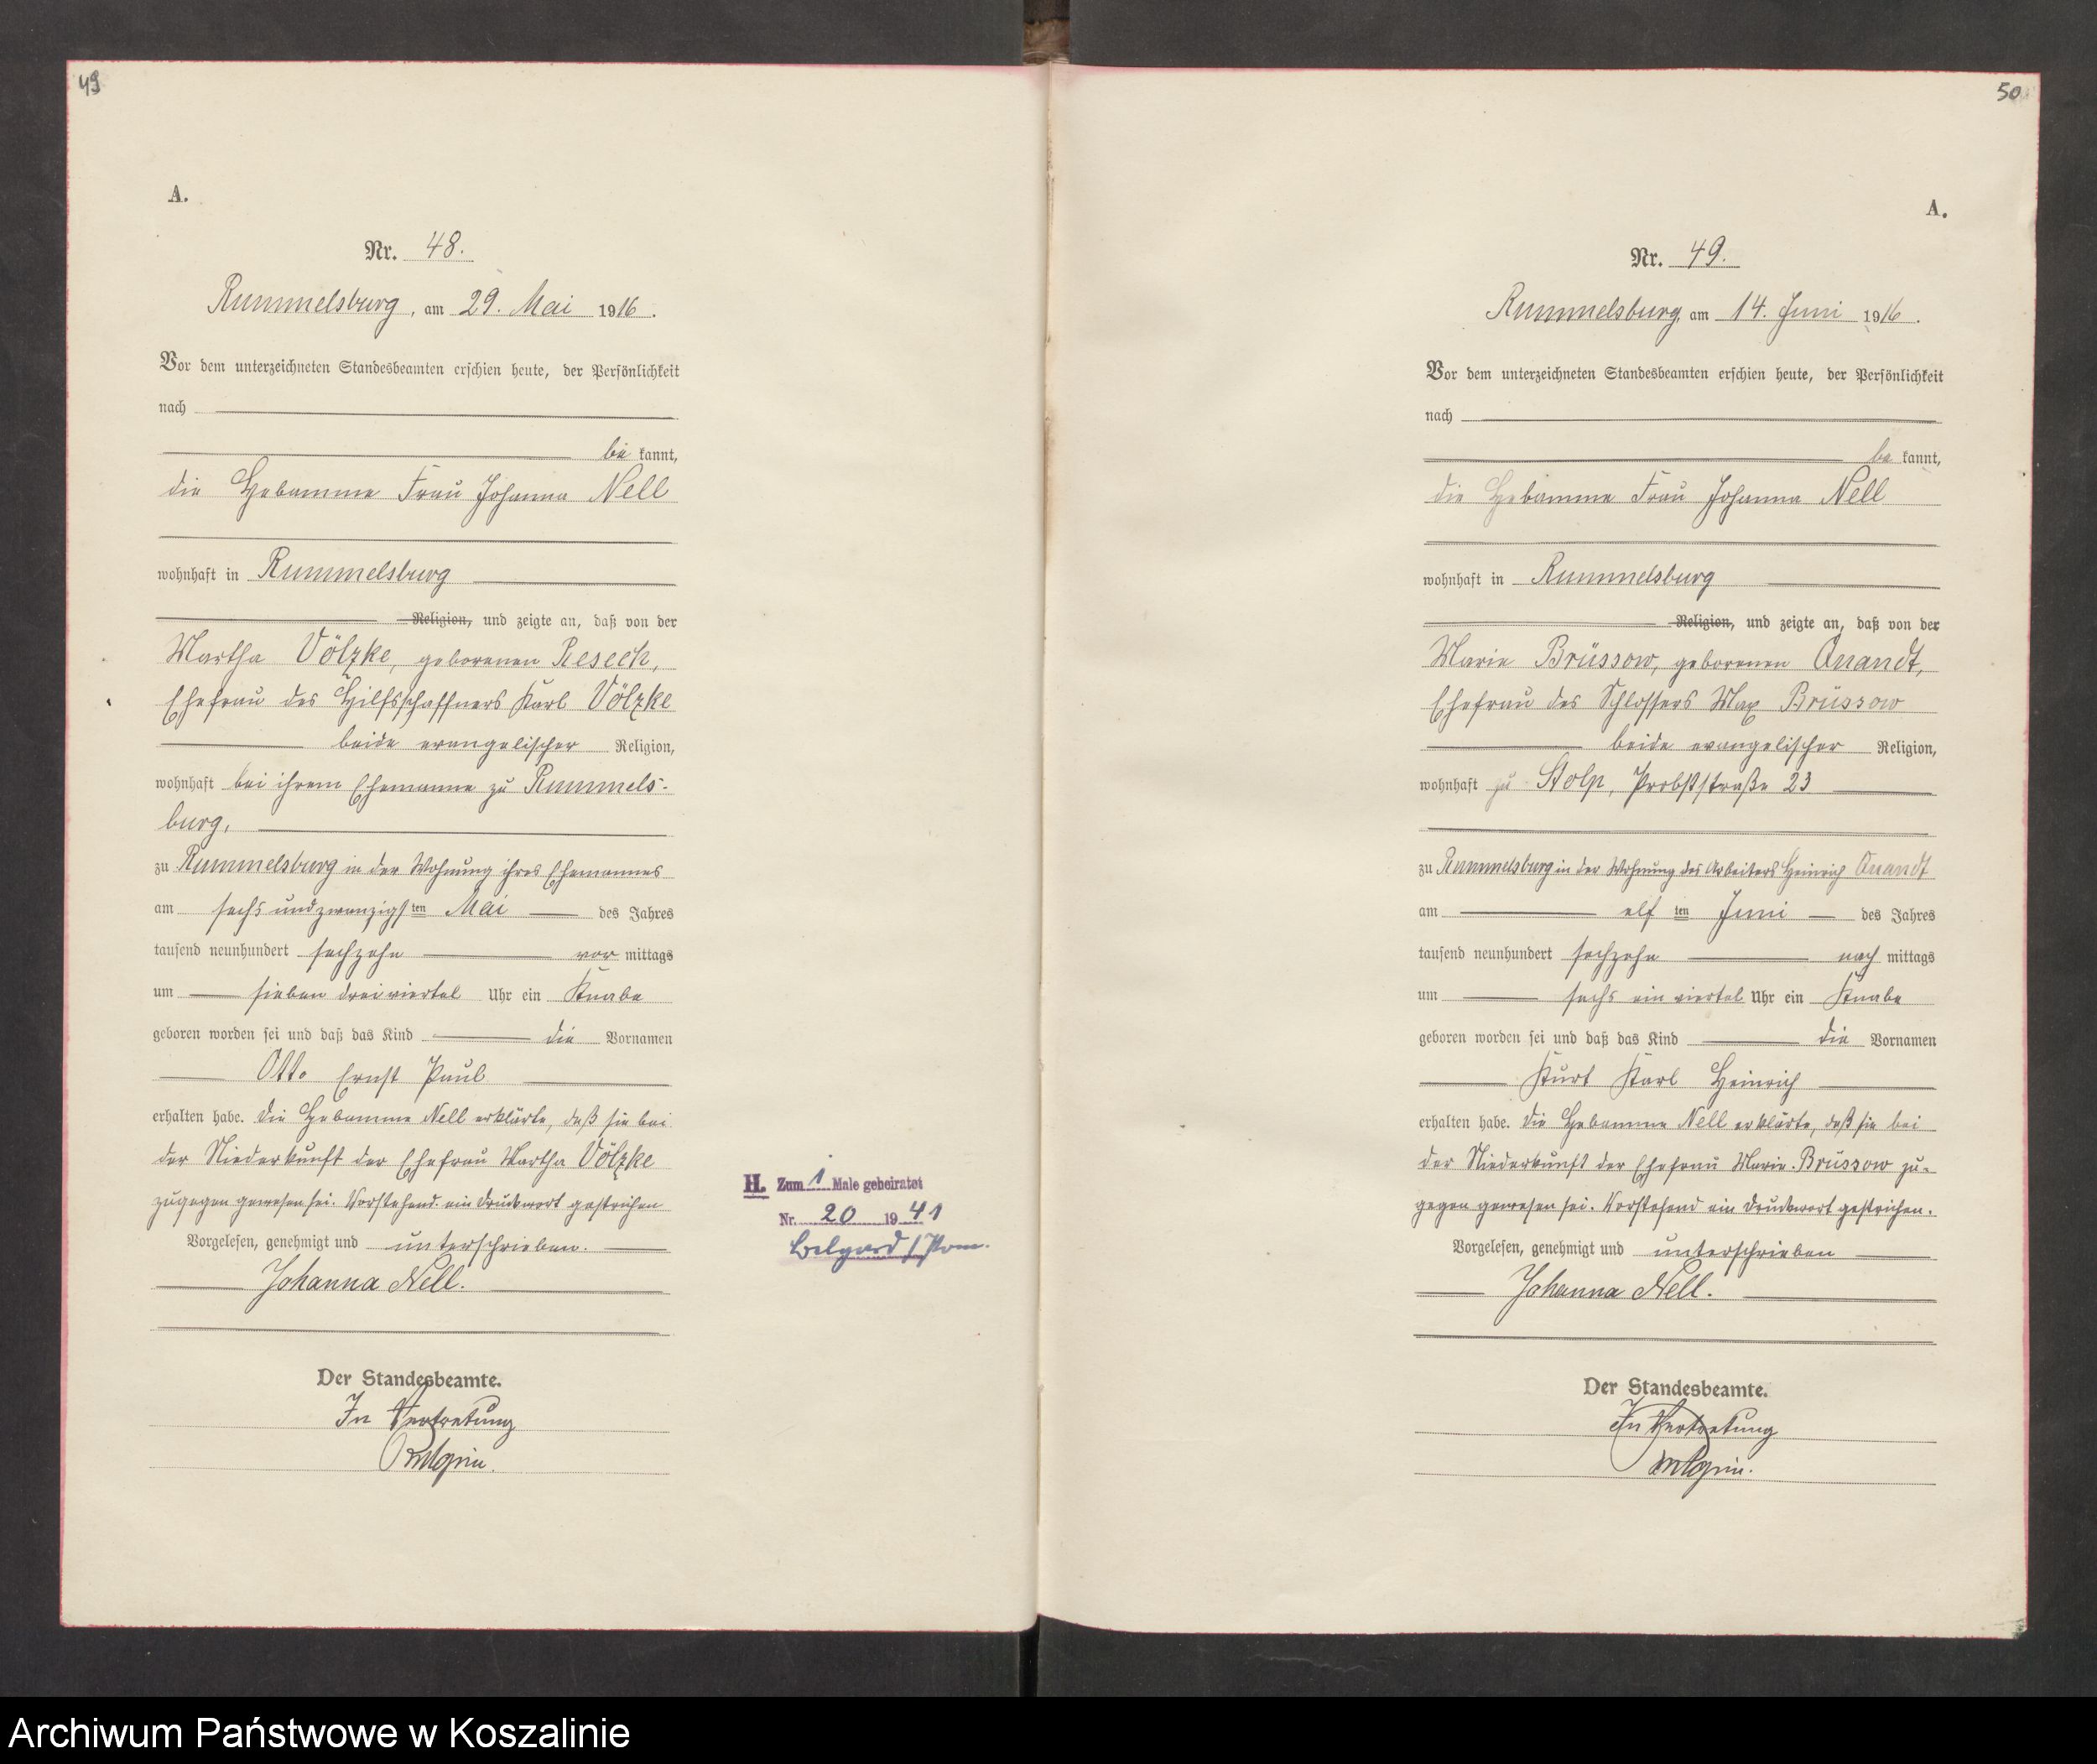 49
A.
Nr. 48.
Rummelsburg, am 29. Mai 1916.
Vor dem unterzeichneten Standesbeamten erschien heute, der Persönlichkeit
nach
be kannt,
die Hebamme Frau Johanna Nell
wohnhaft in Rummelsburg
Religion, und zeigte an, daß von der
Martha Völzke, geborenen Resech,
Ehefrau des Hilfsschaffners Karl Völzke
beide evangelischer Religion,
wohnhaft bei ihrem Ehemanne zu Rummels-
burg,
zu Rummelsburg in der Wohnung ihres Ehemannes
am sechsundzwanzigsten Mai des Jahres
tausend neunhundert sechzehn vor mittags
um sieben dreiviertel Uhr ein Knabe
geboren worden sei und daß das Kind die Vornamen
Otto Ernst Paul
erhalten habe. Die Hebamme Nell erklärte, daß sie bei
der Niederkunft der Ehefrau Martha Völzke
zugegen gewesen sei. Vorstehend ein Druckwort gestrichen
Vorgelesen, genehmigt und unterschrieben.
Johanna Nell.
Der Standesbeamte.
In Vertretung
H. Zum 1 Male geheiratet
Nr. 20 1941
Belgard / Pom.
50
A.
Nr. 49.
Rummelsburg, am 14. Juni 1916.
Vor dem unterzeichneten Standesbeamten erschien heute, der Persönlichkeit
nach
be kannt,
die Hebamme Frau Johanna Nell
wohnhaft in Rummelsburg
Religion, und zeigte an, daß von der
Marie Brüssow, geborenen Quandt,
Ehefrau des Schlossers Max Brüssow
beide evangelischer Religion,
wohnhaft zu Stolp, Probststraße 23
zu Rummelsburg in der Wohnung des Arbeiters Heinrich Quandt
am elf ten Juni des Jahres
tausend neunhundert sechzehn nach mittags
um sechs ein viertel Uhr ein Knabe
geboren worden sei und daß das Kind die Vornamen
Kurt Karl Heinrich
erhalten habe. Die Hebamme Nell erklärte, daß sie bei
der Niederkunft der Ehefrau Marie Brüssow zu-
gegen gewesen sei. Vorstehend ein Druckwort gestrichen.
Vorgelesen, genehmigt und unterschrieben
Johanna Nell.
Der Standesbeamte.
In Vertretung
Archiwum Państwowe w Koszalinie